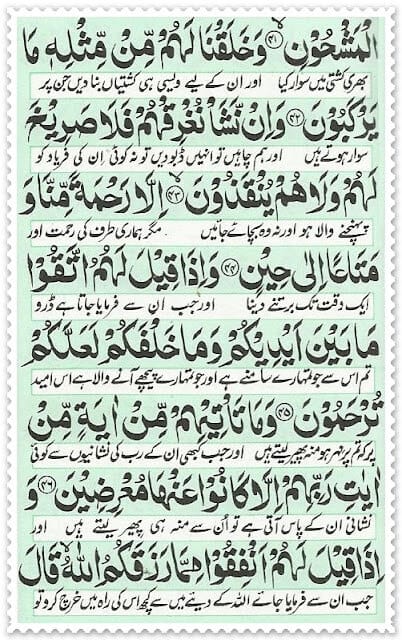 الْمَشْحُوْنِ ﴿۴۱﴾ وَخَلَقْنَا لَهُمْ مِّنْ مِّثْلِهٖ مَا
بھری کشتی میں سوار کیا اور ان کے لیے ویسی ہی کشتیاں بنا دیں جن پر
يَرْكَبُوْنَ ﴿۴۲﴾ وَاِنْ نَّشَاْ نُغْرِقْهُمْ فَلَا صَرِيْخَ
سوار ہوتے ہیں اور ہم چاہیں تو انہیں ڈبو دیں تو نہ کوئی ان کی فریاد کو
لَهُمْ وَلَا هُمْ يُنْقَذُوْنَ ﴿۴۳﴾ اِلَّا رَحْمَةً مِّنَّا وَ
پہنچنے والا ہو اور نہ وہ بچائے جائیں مگر ہماری طرف کی رحمت اور
مَتَاعًا اِلٰى حِيْنٍ ﴿۴۴﴾ وَاِذَا قِيْلَ لَهُمُ اتَّقُوْا
ایک وقت تک برتنے دینا اور جب ان سے فرمایا جاتا ہے ڈرو
مَا بَيْنَ اَيْدِيْكُمْ وَمَا خَلْفَكُمْ لَعَلَّكُمْ
تم اس سے جو تمہارے سامنے ہے اور جو تمہارے پیچھے آنے والا ہے اس امید
تُرْحَمُوْنَ ﴿۴۵﴾ وَمَا تَاْتِيْهِمْ مِّنْ اٰيَةٍ مِّنْ
پر کہ تم پر مہر ہو منہ پھیر لیتے ہیں اور جب کبھی ان کے رب کی نشانیوں سے کوئی
اٰيٰتِ رَبِّهِمْ اِلَّا كَانُوْا عَنْهَا مُعْرِضِيْنَ ﴿۴۶﴾ وَ
نشانی ان کے پاس آتی ہے تو اس سے منہ ہی پھیر لیتے ہیں اور
اِذَا قِيْلَ لَهُمْ اَنْفِقُوْا مِمَّا رَزَقَكُمُ اللّٰهُ قَالَ
جب ان سے فرمایا جائے اللہ کے دیئے میں سے کچھ اس کی راہ میں خرچ کرو تو